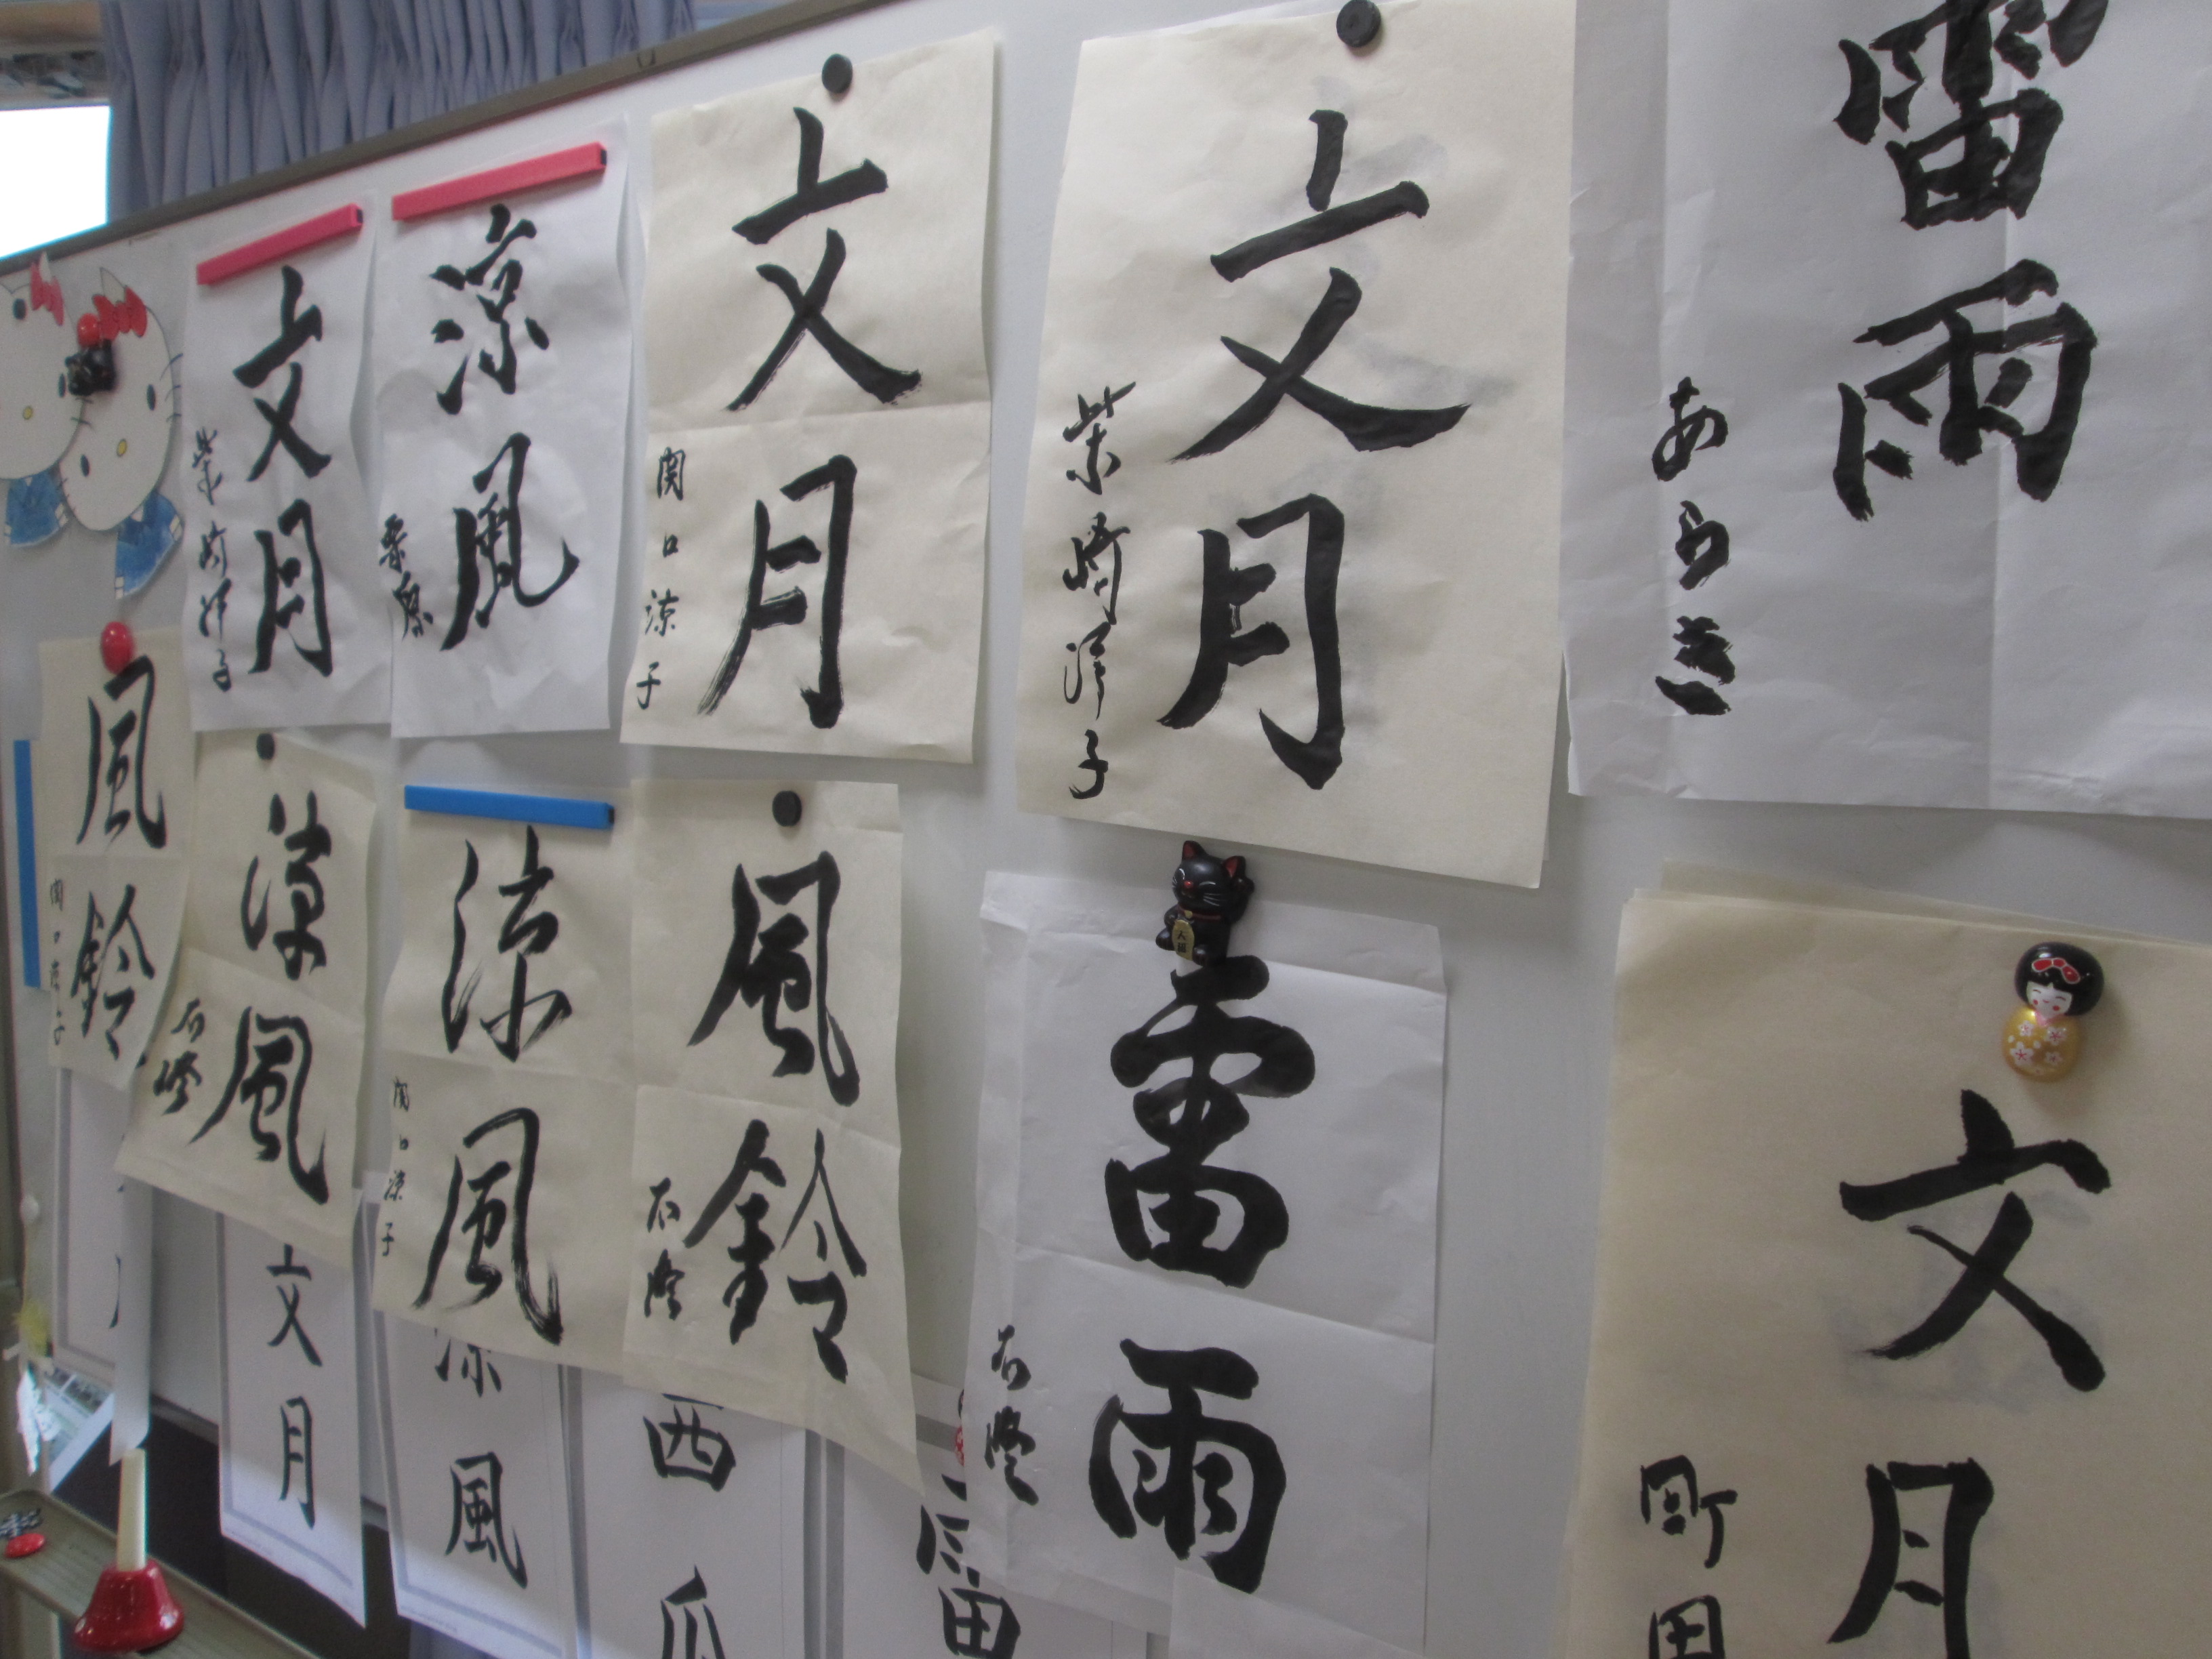 文月
涼風
文月
関口涼子
文月
柴崎洋子
雷雨
あらき
風鈴
関口涼子
涼風
涼風
関口涼子
風鈴
雷雨
文月
町田
文月
涼風
西瓜
雷